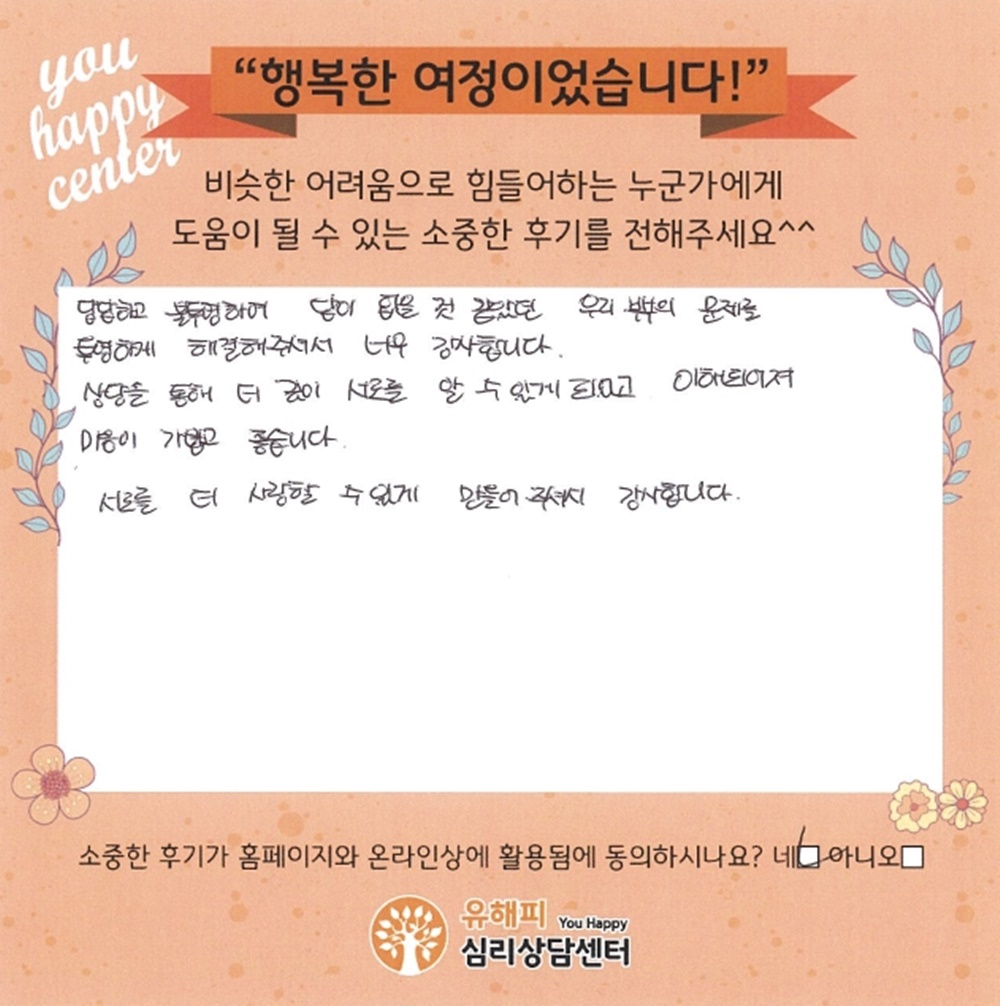 you
happy
center
“행복한 여정이었습니다!”
비슷한 어려움으로 힘들어하는 누군가에게
도움이 될 수 있는 소중한 후기를 전해주세요^^
답답하고 불투명하여 답이 없을 것 같았던 우리 부부의 문제를
투명하게 해결해주셔서 너무 감사합니다.
상담을 통해 더 깊이 서로를 알 수 있게 되었고 이해되어져
마음이 가볍고 좋습니다.
서로를 더 사랑할 수 있게 만들어 주셔서 감사합니다.
소중한 후기가 홈페이지와 온라인상에 활용됨에 동의하시나요? 네□ 아니오□
유해피 You Happy
심리상담센터